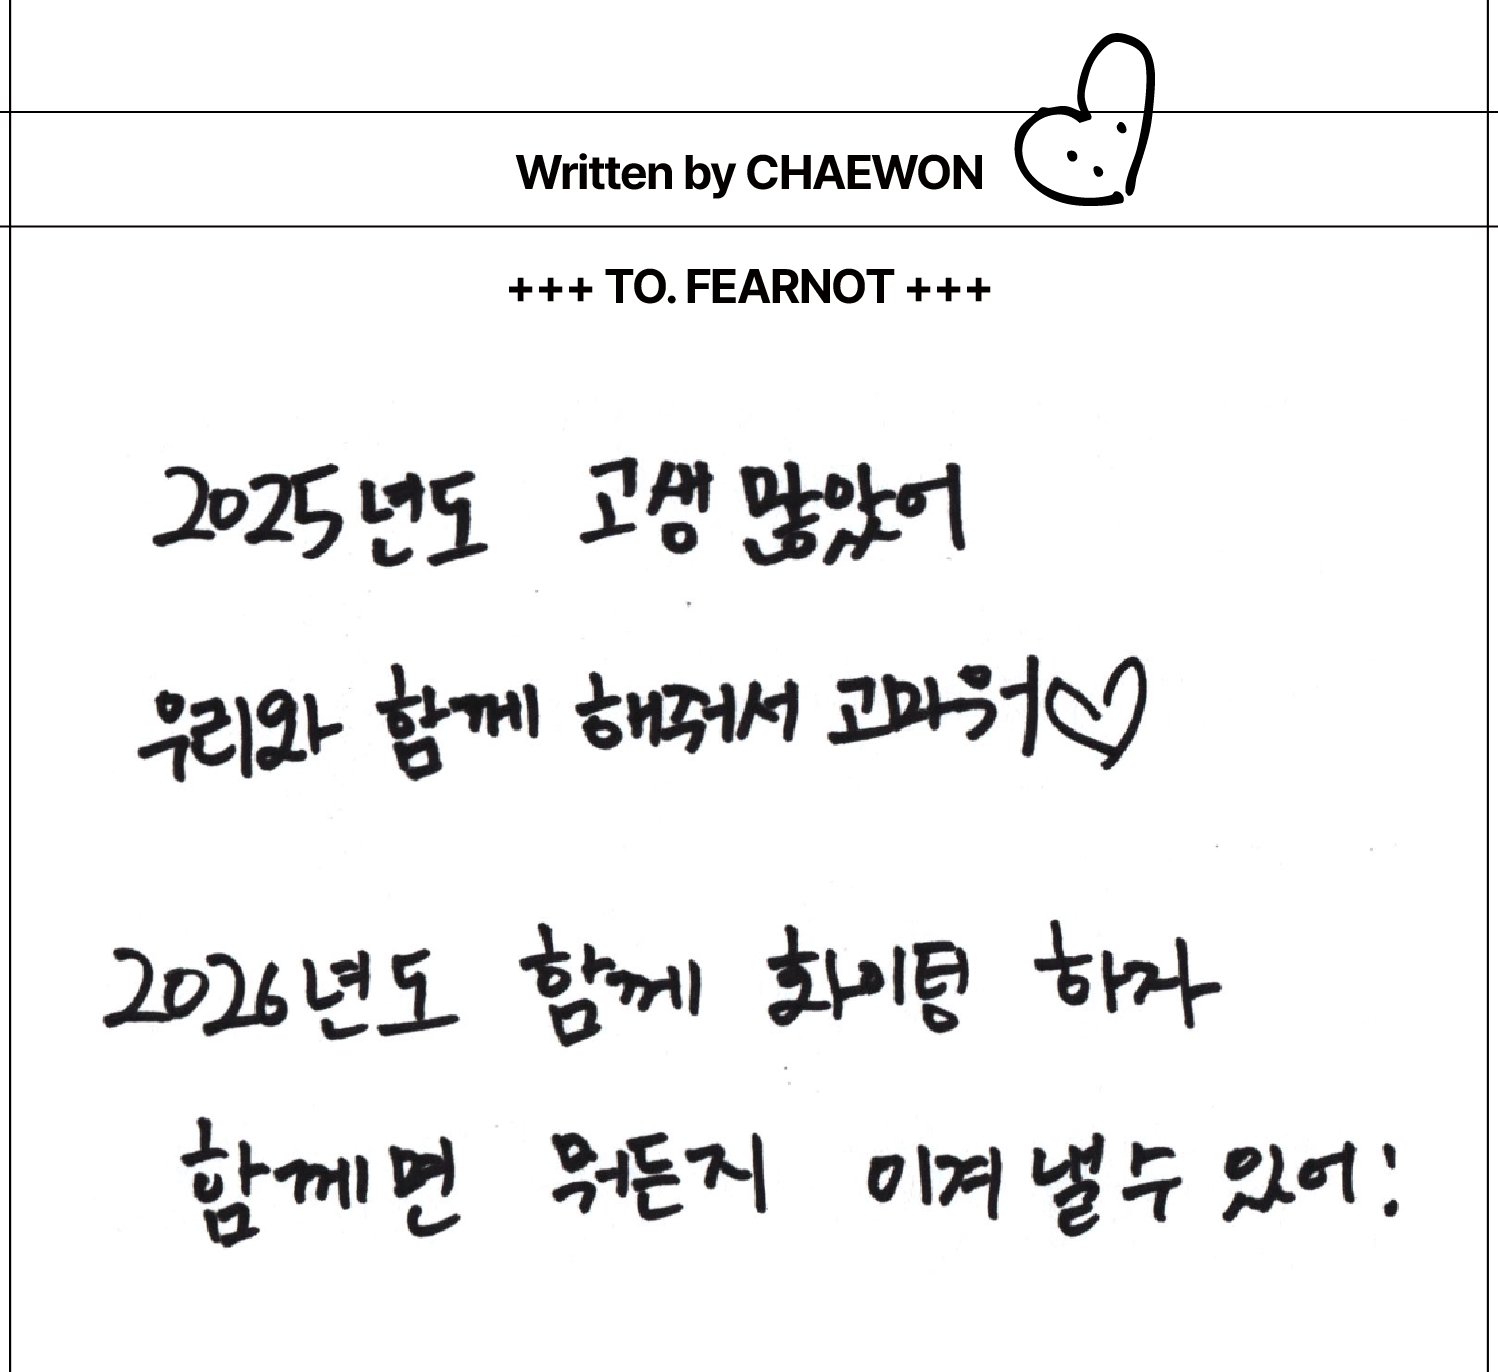 Written by CHAEWON
+++ TO. FEARNOT +++
2025년도 고생 많았어
우리와 함께 해줘서 고마워♡
2026년도 함께 화이팅 하자
함께면 뭐든지 이겨 낼 수 있어!